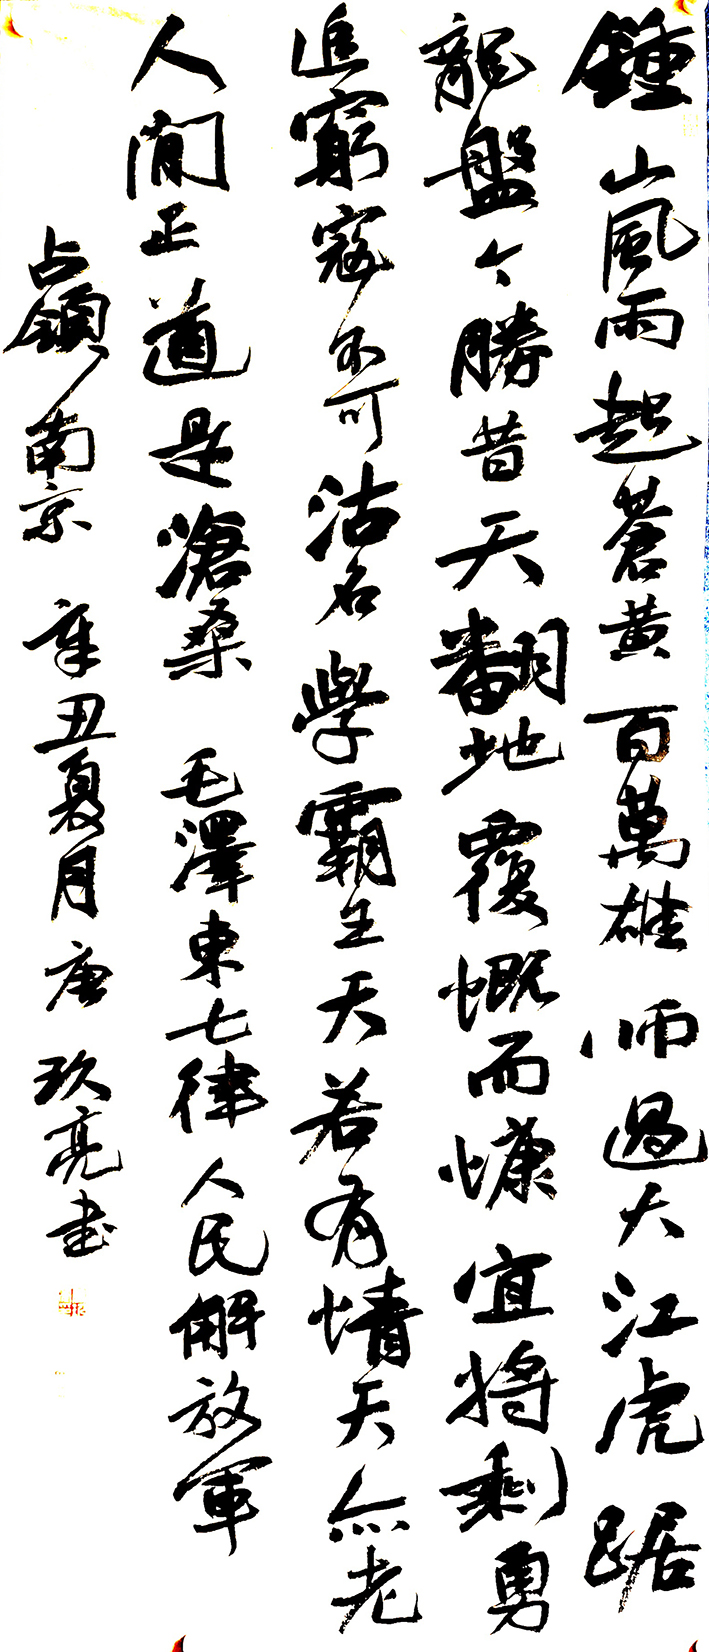 鍾山風雨起蒼黄百萬雄師過大江虎踞
龍盤今勝昔天翻地覆慨而慷宜將剩勇
追窮寇不可沽名學霸王天若有情天亦老
人間正道是滄桑 毛澤東七律人民解放軍
占領南京 辛丑夏月唐玖亮书